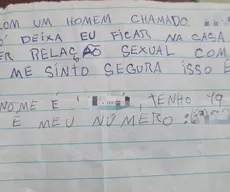 OM UM HOMEM CHAMADO
Ó DEIXA EU FICAR NA CASA
ER RELAÇÃO SEXUAL COM
ME SINTO SEGURA ISSO É
NOME É , TENHO 19
É MEU NUMERO: